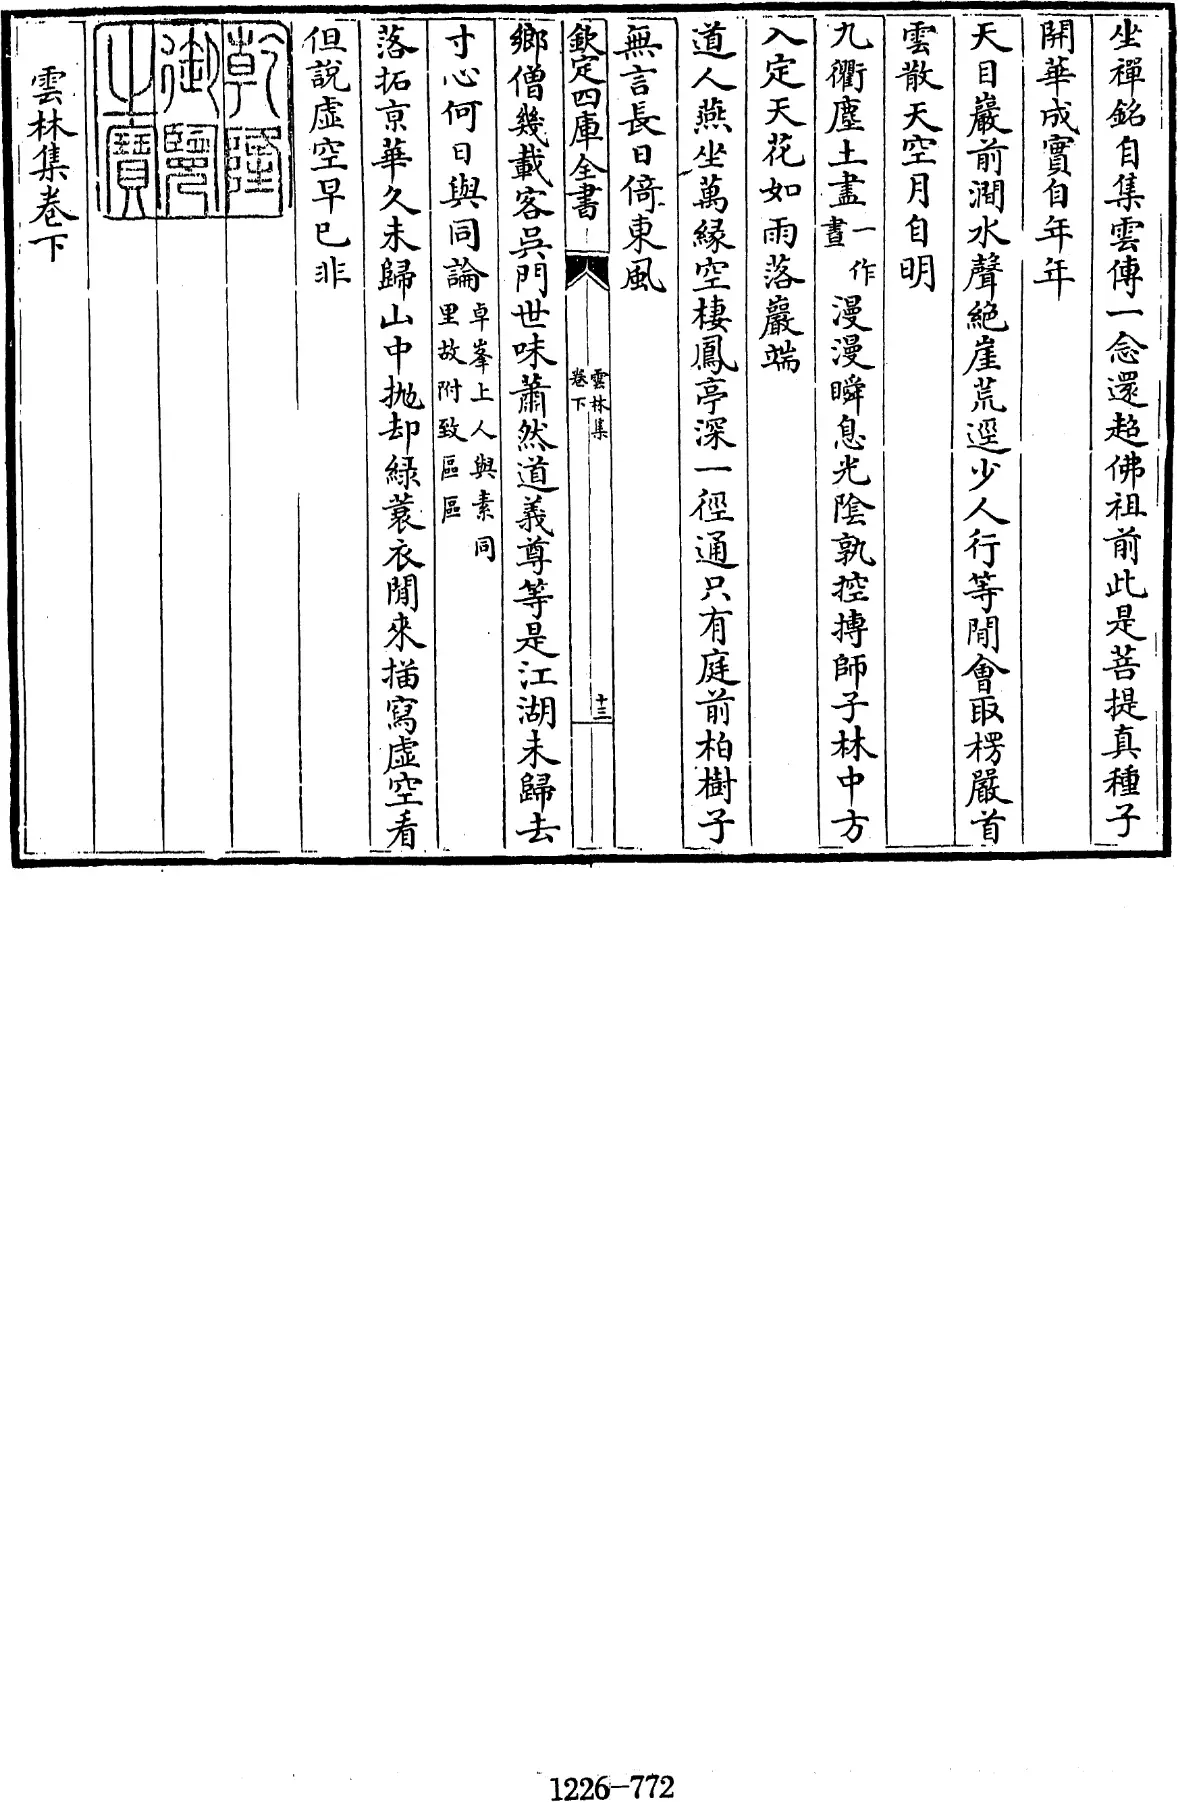 坐禪銘自集雲傳一念還超佛祖前此是菩提真種子
開華成實自年年
天目巖前澗水聲絶崖荒逕少人行等閒會取楞嚴首
雲散天空月自明
九衢塵土盡一作晝漫漫瞬息光陰孰控摶師子林中方
入定天花如雨落巖端
道人燕坐萬緣空棲鳳亭深一徑通只有庭前柏樹子
無言長日倚東風
欽定四庫全書
雲林集
卷下
十三
鄉僧幾載客吳門世味蕭然道義尊等是江湖未歸去
寸心何日與同論卓峯上人與素同里故附致區區
落拓京華久未歸山中抛却綠蓑衣閒來描寫虛空看
但說虛空早已非
乾隆御覽之寶
雲林集卷下
1226-772